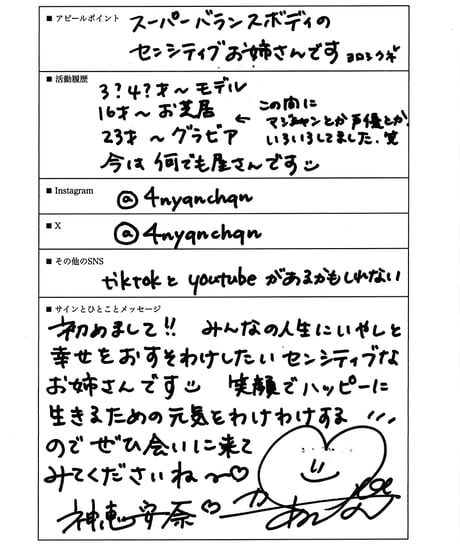 ■ アピールポイント
スーパーバランスボディの
センシティブお姉さんです ヨロシクギ
■ 活動履歴
3?4?才〜モデル
16才〜お芝居
23才〜グラビア
今は何でも屋さんです
← この間に
マジシャンとか声優とか、
いろいろしてました.笑
■ Instagram
@4nyanchan
■ X
@4nyanchan
■ その他のSNS
tiktokとyoutubeがあるかもしれない
■ サインとひとことメッセージ
初めまして!! みんなの人生にいやしと
幸せをおすそわけしたいセンシティブな
お姉さんです 笑顔でハッピーに
生きるための元気をわけわけする
のでぜひ会いに来て
みてくださいね〜♡
神恵安奈♡